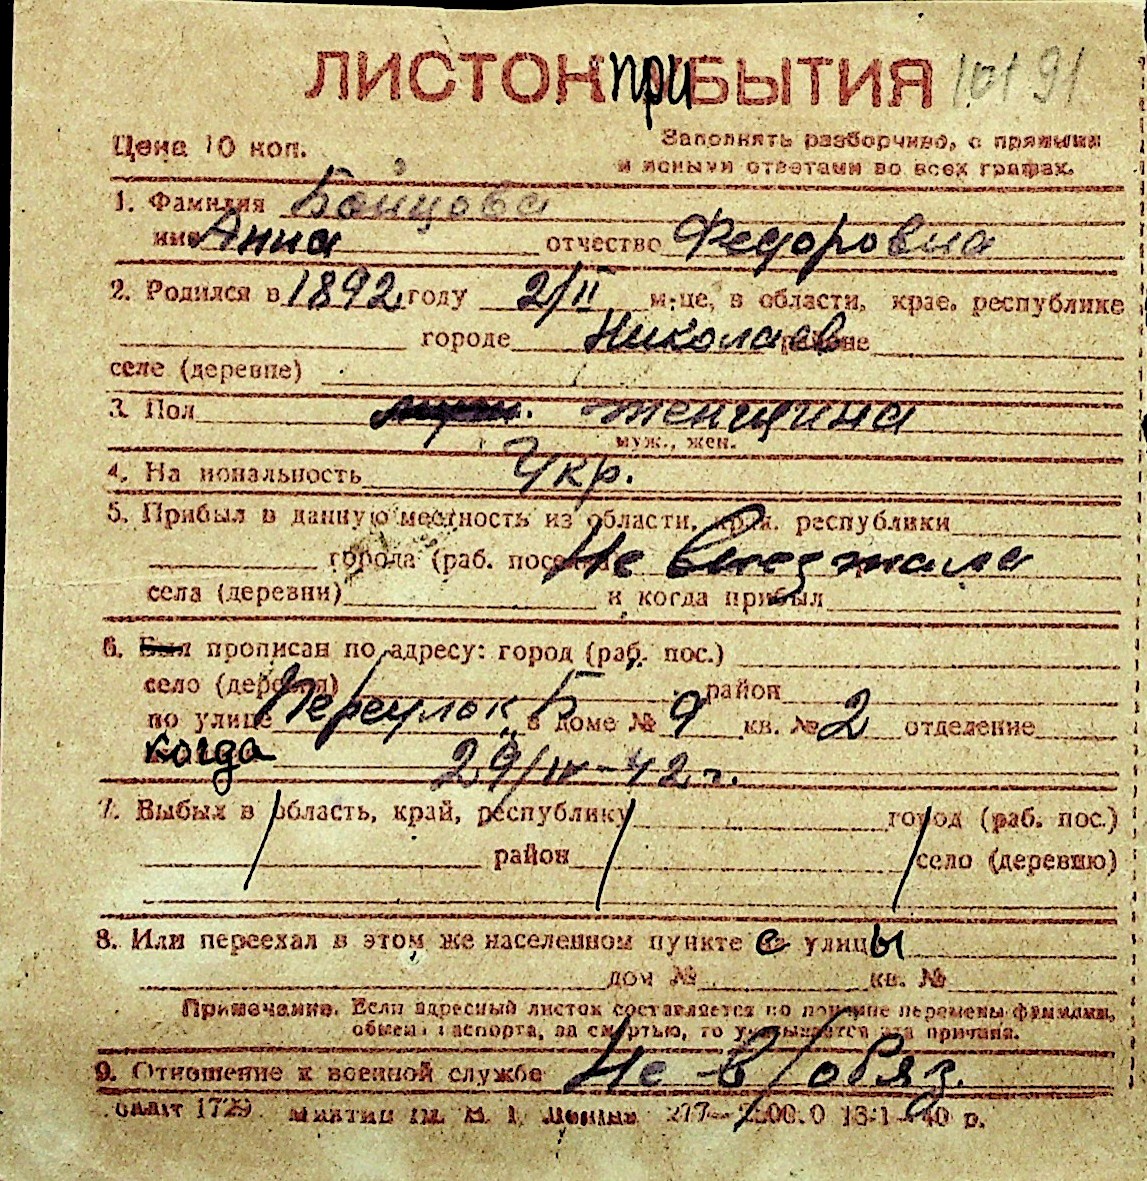 ЛИСТОК ПРИБЫТИЯ 10191
Цена 10 коп. Заполнять разборчиво, с прямыми
и ясными ответами во всех графах.
1. Фамилия
имя Анна отчество Федоровна
2. Родился в 1892 году 2/II м-це, в области, крае, республике
городе Николаев районе
селе (деревне)
3. Пол муж. женщина
муж., жен.
4. Национальность Укр.
5. Прибыл в данную местность из области, края, республики
города (раб. поселка) Не выезжала
села (деревни) и когда прибыл
6. Был прописан по адресу: город (раб. пос.)
село (деревня) район
по улице Переулок Б в доме № 9 кв. № 2 отделение
когда 29/IV-42 г.
7. Выбыл в область, край, республику город (раб. пос.)
район село (деревню)
8. Или переехал в этом же населенном пункте с улицы
дом № кв. №
Примечание. Если адресный листок составляется по причине перемены фамилии,
обмена паспорта, за смертью, то указывается эта причина.
9. Отношение к военной службе Не в/обяз.
1729 18-1-40 р.